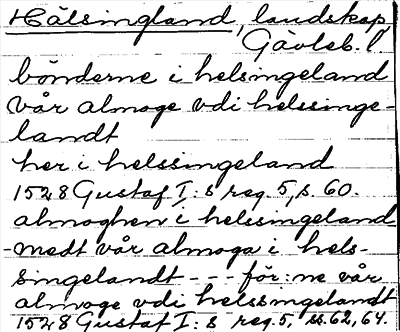 Hälsingland, landskap,
Gävleb. l
bönderne i helsingeland
vår almoge vdi helssinge-
landt
her i helssingeland
1528 Gustaf I:s reg. 5, s. 60.
almoghen i helssingeland
-medt vår almoga i hels-
singelandt - - - för:ne vår
almoge vdi helssingelandt
1528 Gustaf I:s reg. 5, ss. 62, 64.